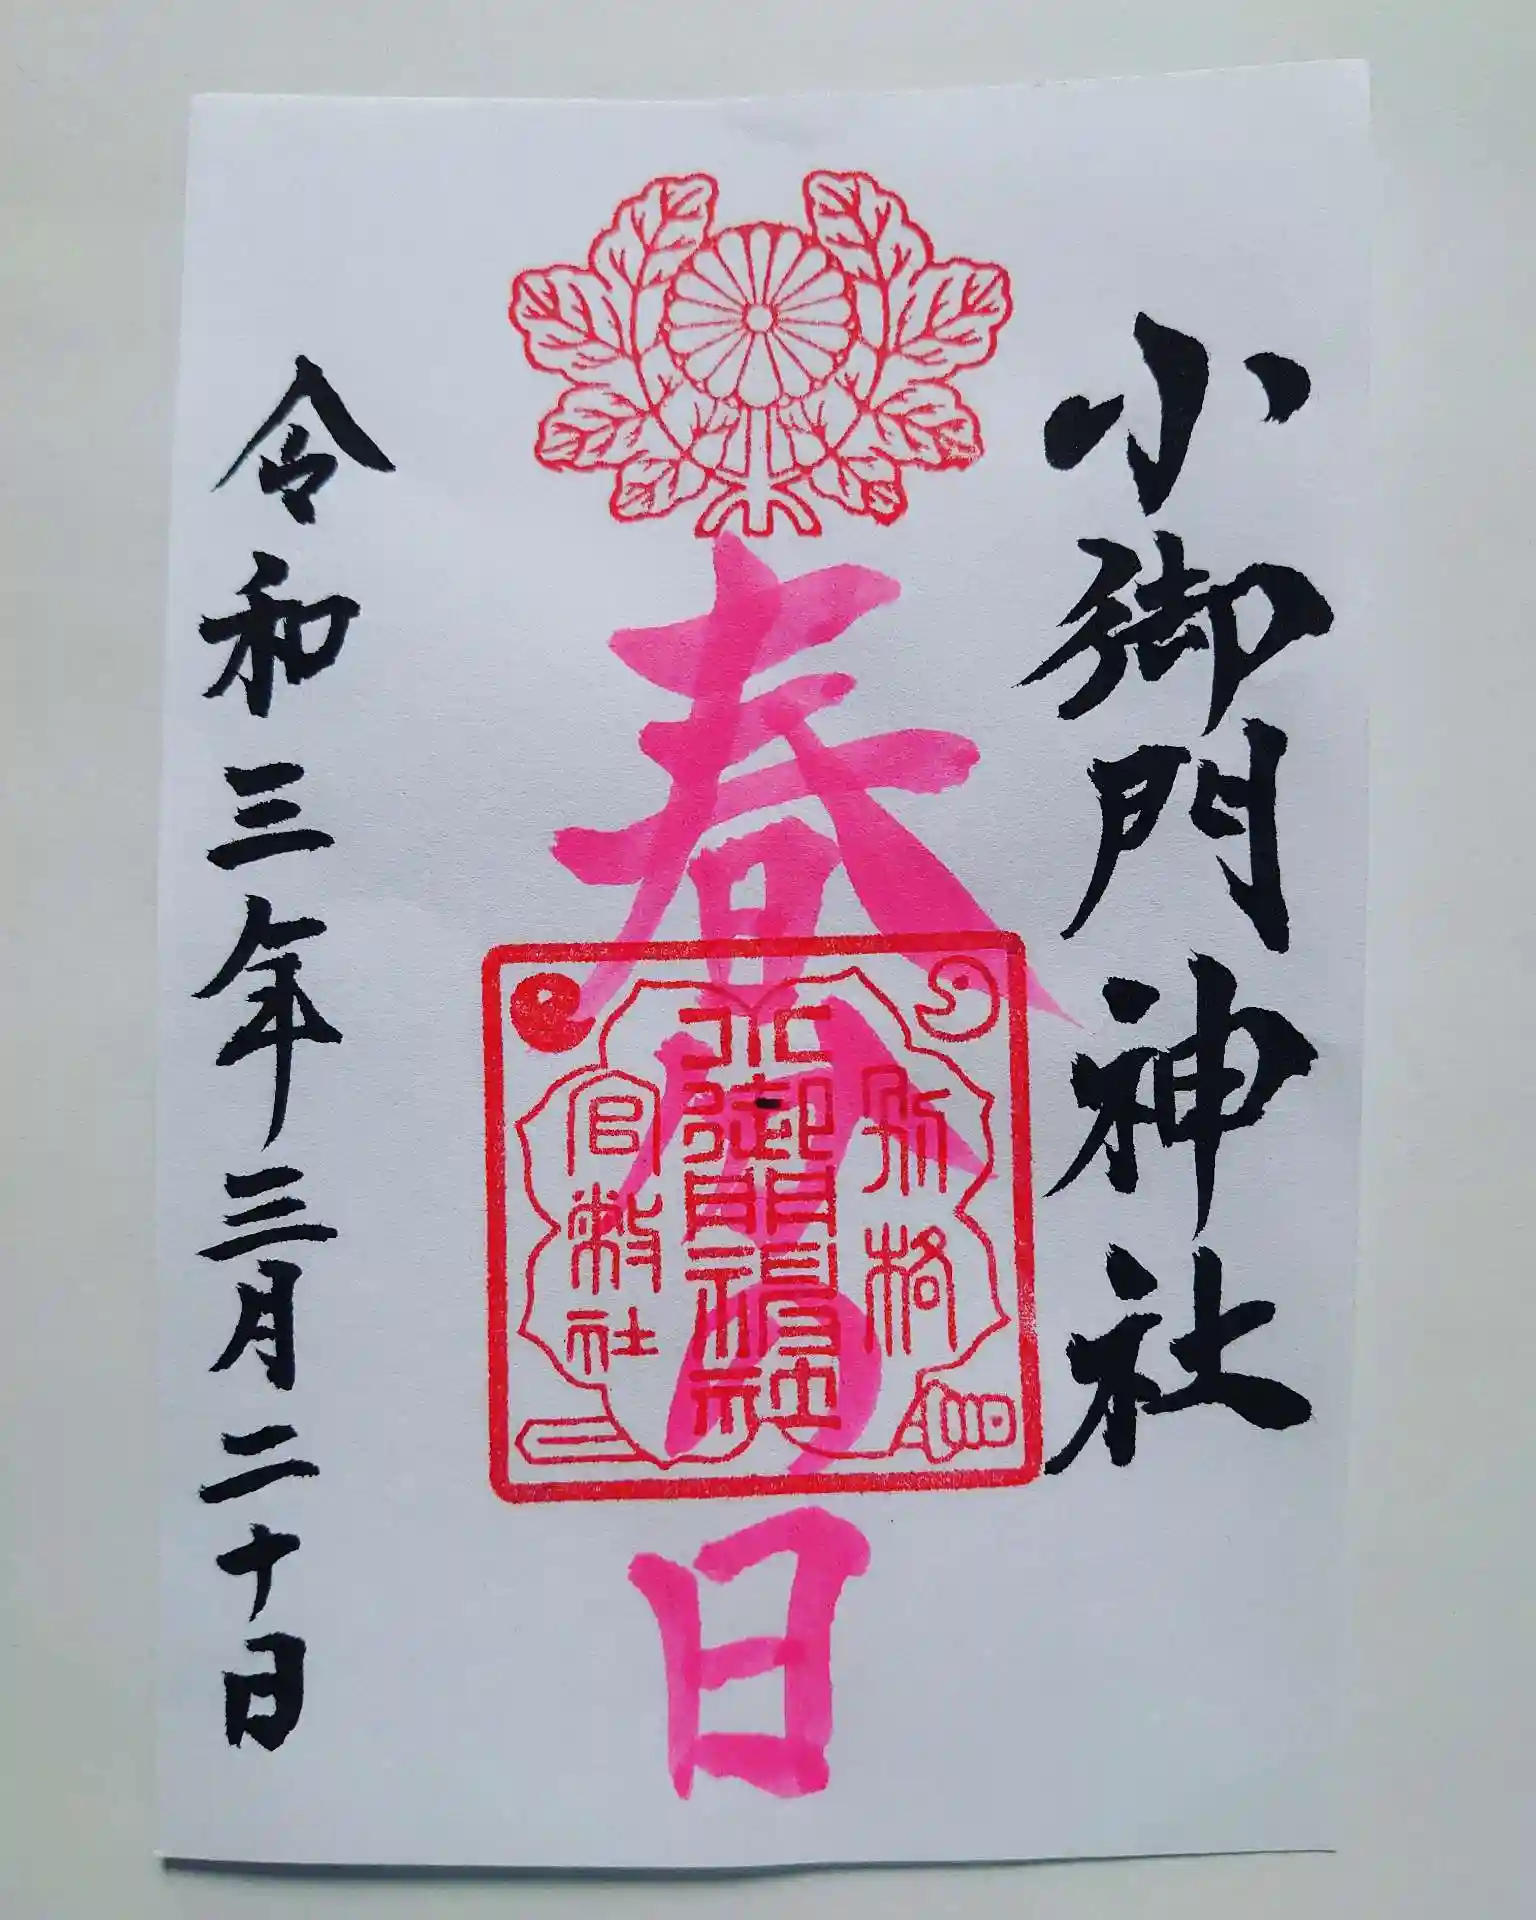 小御門神社
春分の日
別格
小御門神社
官幣社
令和三年三月二十日